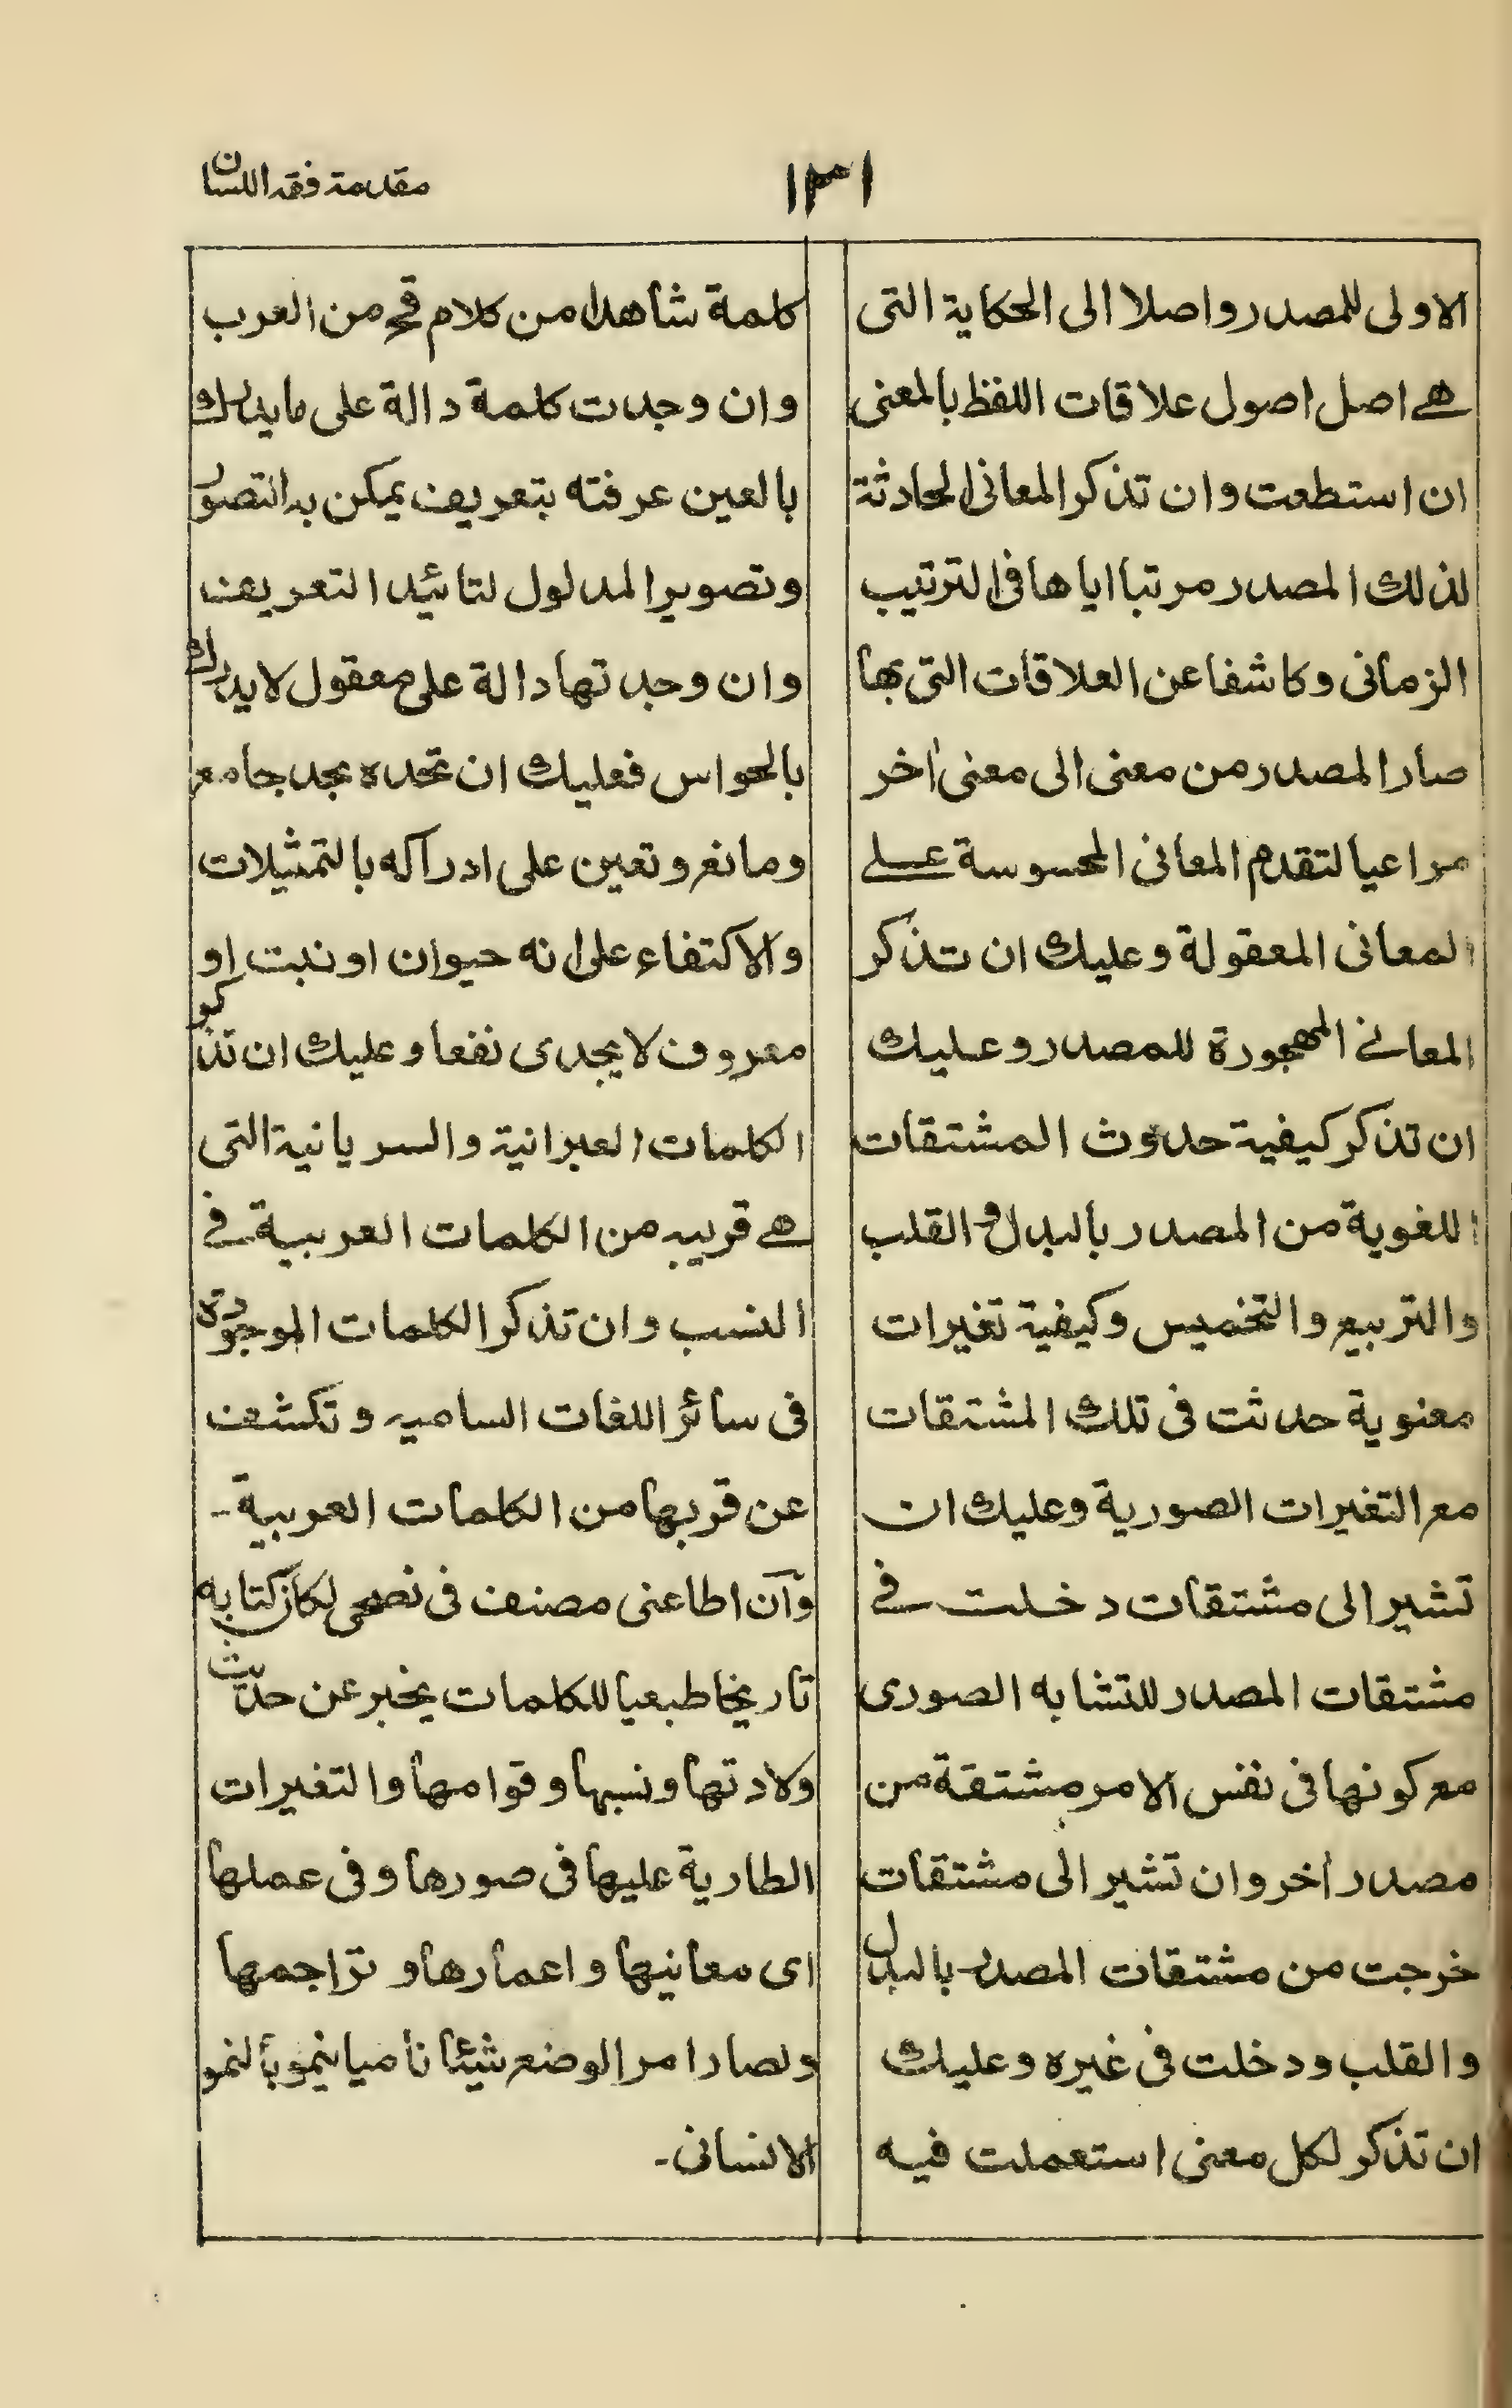 مقدمة فقه اللسان
١٣١
الاولى للمصدر واصلا الى الحكاية التى
هے اصل اصول علاقات اللفظ بالمعنى
ان استطعت وان تذكر المعانى الحادثة
لذلك المصدر مرتبا اياها فى الترتيب
الزمانى وكاشفا عن العلاقات التى بها
صار المصدر من معنى الى معنى اٰخر
مراعيا لتقدم المعانى المحسوسة علے
المعانى المعقولة وعليك ان تذكر
المعانے المهجورة للمصدر وعليك
ان تذكر كيفية حدوث المشتقات
اللغوية من المصدر بالبدل و القلب
والتربيع والتخميس وكيفية تغيرات
معنوية حدثت فى تلك المشتقات
مع التغيرات الصورية وعليك ان
تشير الى مشتقات دخلت فے
مشتقات المصدر للتشابه الصورى
مع كونها فى نفس الامر مشتقة من
مصدر اٰخر وان تشير الى مشتقات
خرجت من مشتقات المصدر بالبدل
والقلب ودخلت فى غيره وعليك
ان تذكر لكل معنى استعملت فيه
كلمة شاهدا من كلام قح من العرب
وان وجدت كلمة دالة على مايدرك
بالعين عرفته بتعريف يمكن به التصور
وتصوير المدلول لتائيد التعريف
وان وجدتها دالة على معقول لايدرك
بالحواس فعليك ان تحده بحد جامع
ومانع وتعين على ادراكه بالتمثيلات
والاكتفاء على انه حيوان او نبت او
معروف لايجدى نفعا وعليك ان تذكر
الكلمات العبرانية والسريانية التى
هے قريبه من الكلمات العربية فے
النسب وان تذكر الكلمات الموجودة
فى سائر اللغات الساميه وتكشف
عن قربها من الكلمات العربية ـ
وآن اطاعنى مصنف فى نصحى لكان كتابه
تاريخا طبعيا للكلمات يخبر عن حدث
ولادتها ونسبها وقوامها والتغيرات
الطارية عليها فى صورها وفى عملها
اى معانيها واعمارها و تراجمها
ولصار امر الوضع شيئا ناميا ينمو بالنمو
الانسانى ـ